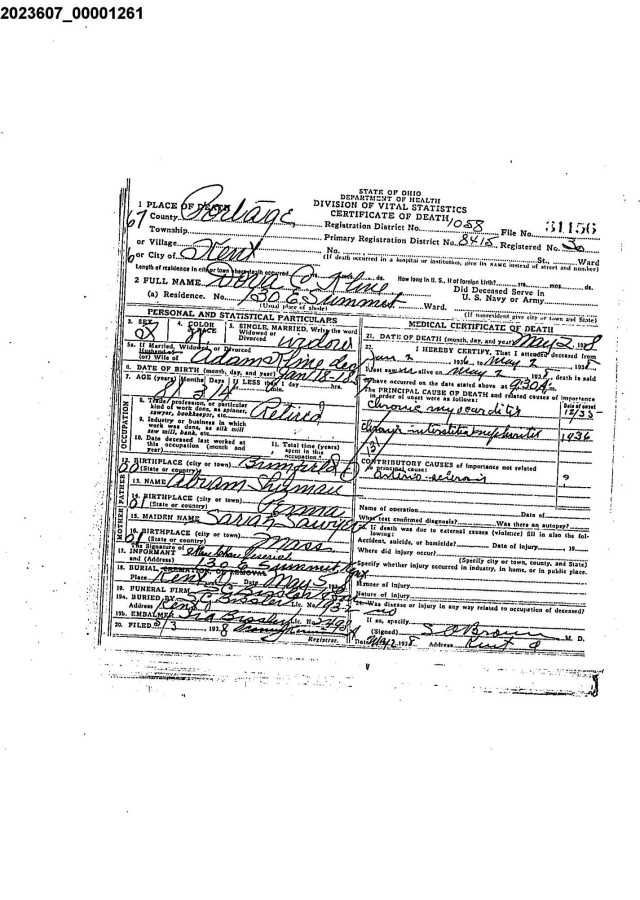 2023607_00001261
STATE OF OHIO
DEPARTMENT OF HEALTH
DIVISION OF VITAL STATISTICS
CERTIFICATE OF DEATH
1 PLACE OF DEATH
67 County Portage
Registration District No. 1058 File No. 31156
Township
Primary Registration District No. 8415 Registered No.
or Village
No. St., Ward
or City of Kent
(If death occurred in a hospital or institution, give its NAME instead of street and number)
Length of residence in city or town where death occurred ds. How long in U. S., if of foreign birth? yrs. mos. ds.
2 FULL NAME Kline
Did Deceased Serve in
U. S. Navy or Army
(a) Residence. No. 130 E. Summit Ward.
(Usual place of abode) (If nonresident give city or town and State)
PERSONAL AND STATISTICAL PARTICULARS
3. SEX
4. COLOR
5. SINGLE, MARRIED, Write the word
Widowed or
Divorced
widow
5a. If Married, Widowed, or Divorced
Husband of
(or) Wife of Adam Kline dec
6. DATE OF BIRTH (month, day, and year) Jan 18-18
7. AGE (years) Months Days If LESS than 1 day hrs.
81 3 14 min.
8. Trade, profession, or particular
kind of work done, as spinner,
sawyer, bookkeeper, etc. Retired
9. Industry or business in which
work was done, as silk mill
saw mill, bank, etc.
10. Date deceased last worked at
this occupation (month and
year)
11. Total time (years)
spent in this
occupation
OCCUPATION
12. BIRTHPLACE (city or town) Brimfield O
(State or country)
FATHER
13. NAME Abram
14. BIRTHPLACE (city or town) Penna
(State or country)
MOTHER
15. MAIDEN NAME Sarah Sawyer
16. BIRTHPLACE (city or town) Mass
(State or country)
The Signature of
17. INFORMANT
and (Address) 130 E Summit
18. BURIAL, CREMATION, OR REMOVAL
Place Kent Date May 5 193
19. FUNERAL FIRM
19a. BURIED BY Bissler Lic. No.
Address Kent
19b. EMBALMER Bissler Lic. No.
20. FILED 5/3 1938
Registrar.
MEDICAL CERTIFICATE OF DEATH
21. DATE OF DEATH (month, day, and year) May 2, 1938
22. I HEREBY CERTIFY, That I attended deceased from
Jan. 2 1936, to May 2 1938
I last saw alive on May 2 1938, death is said
to have occurred on the date stated above at 9:30 A m.
The PRINCIPAL CAUSE OF DEATH and related causes of importance
in order of onset were as follows:
Date of onset
Chronic myocarditis 12/33
Chronic interstitial nephritis 1936
131
CONTRIBUTORY CAUSES of importance not related
to principal cause:
Arterio sclerosis ?
Name of operation Date of
What test confirmed diagnosis? Was there an autopsy?
23. If death was due to external causes (violence) fill in also the fol-
lowing:
Accident, suicide, or homicide? Date of injury 19
Where did injury occur?
(Specify city or town, county, and State)
Specify whether injury occurred in industry, in home, or in public place.
Manner of injury
Nature of injury
24. Was disease or injury in any way related to occupation of deceased?
no
If so, specify
(Signed) S. O. Brown M. D.
Date May 2, 1938 Address Kent O